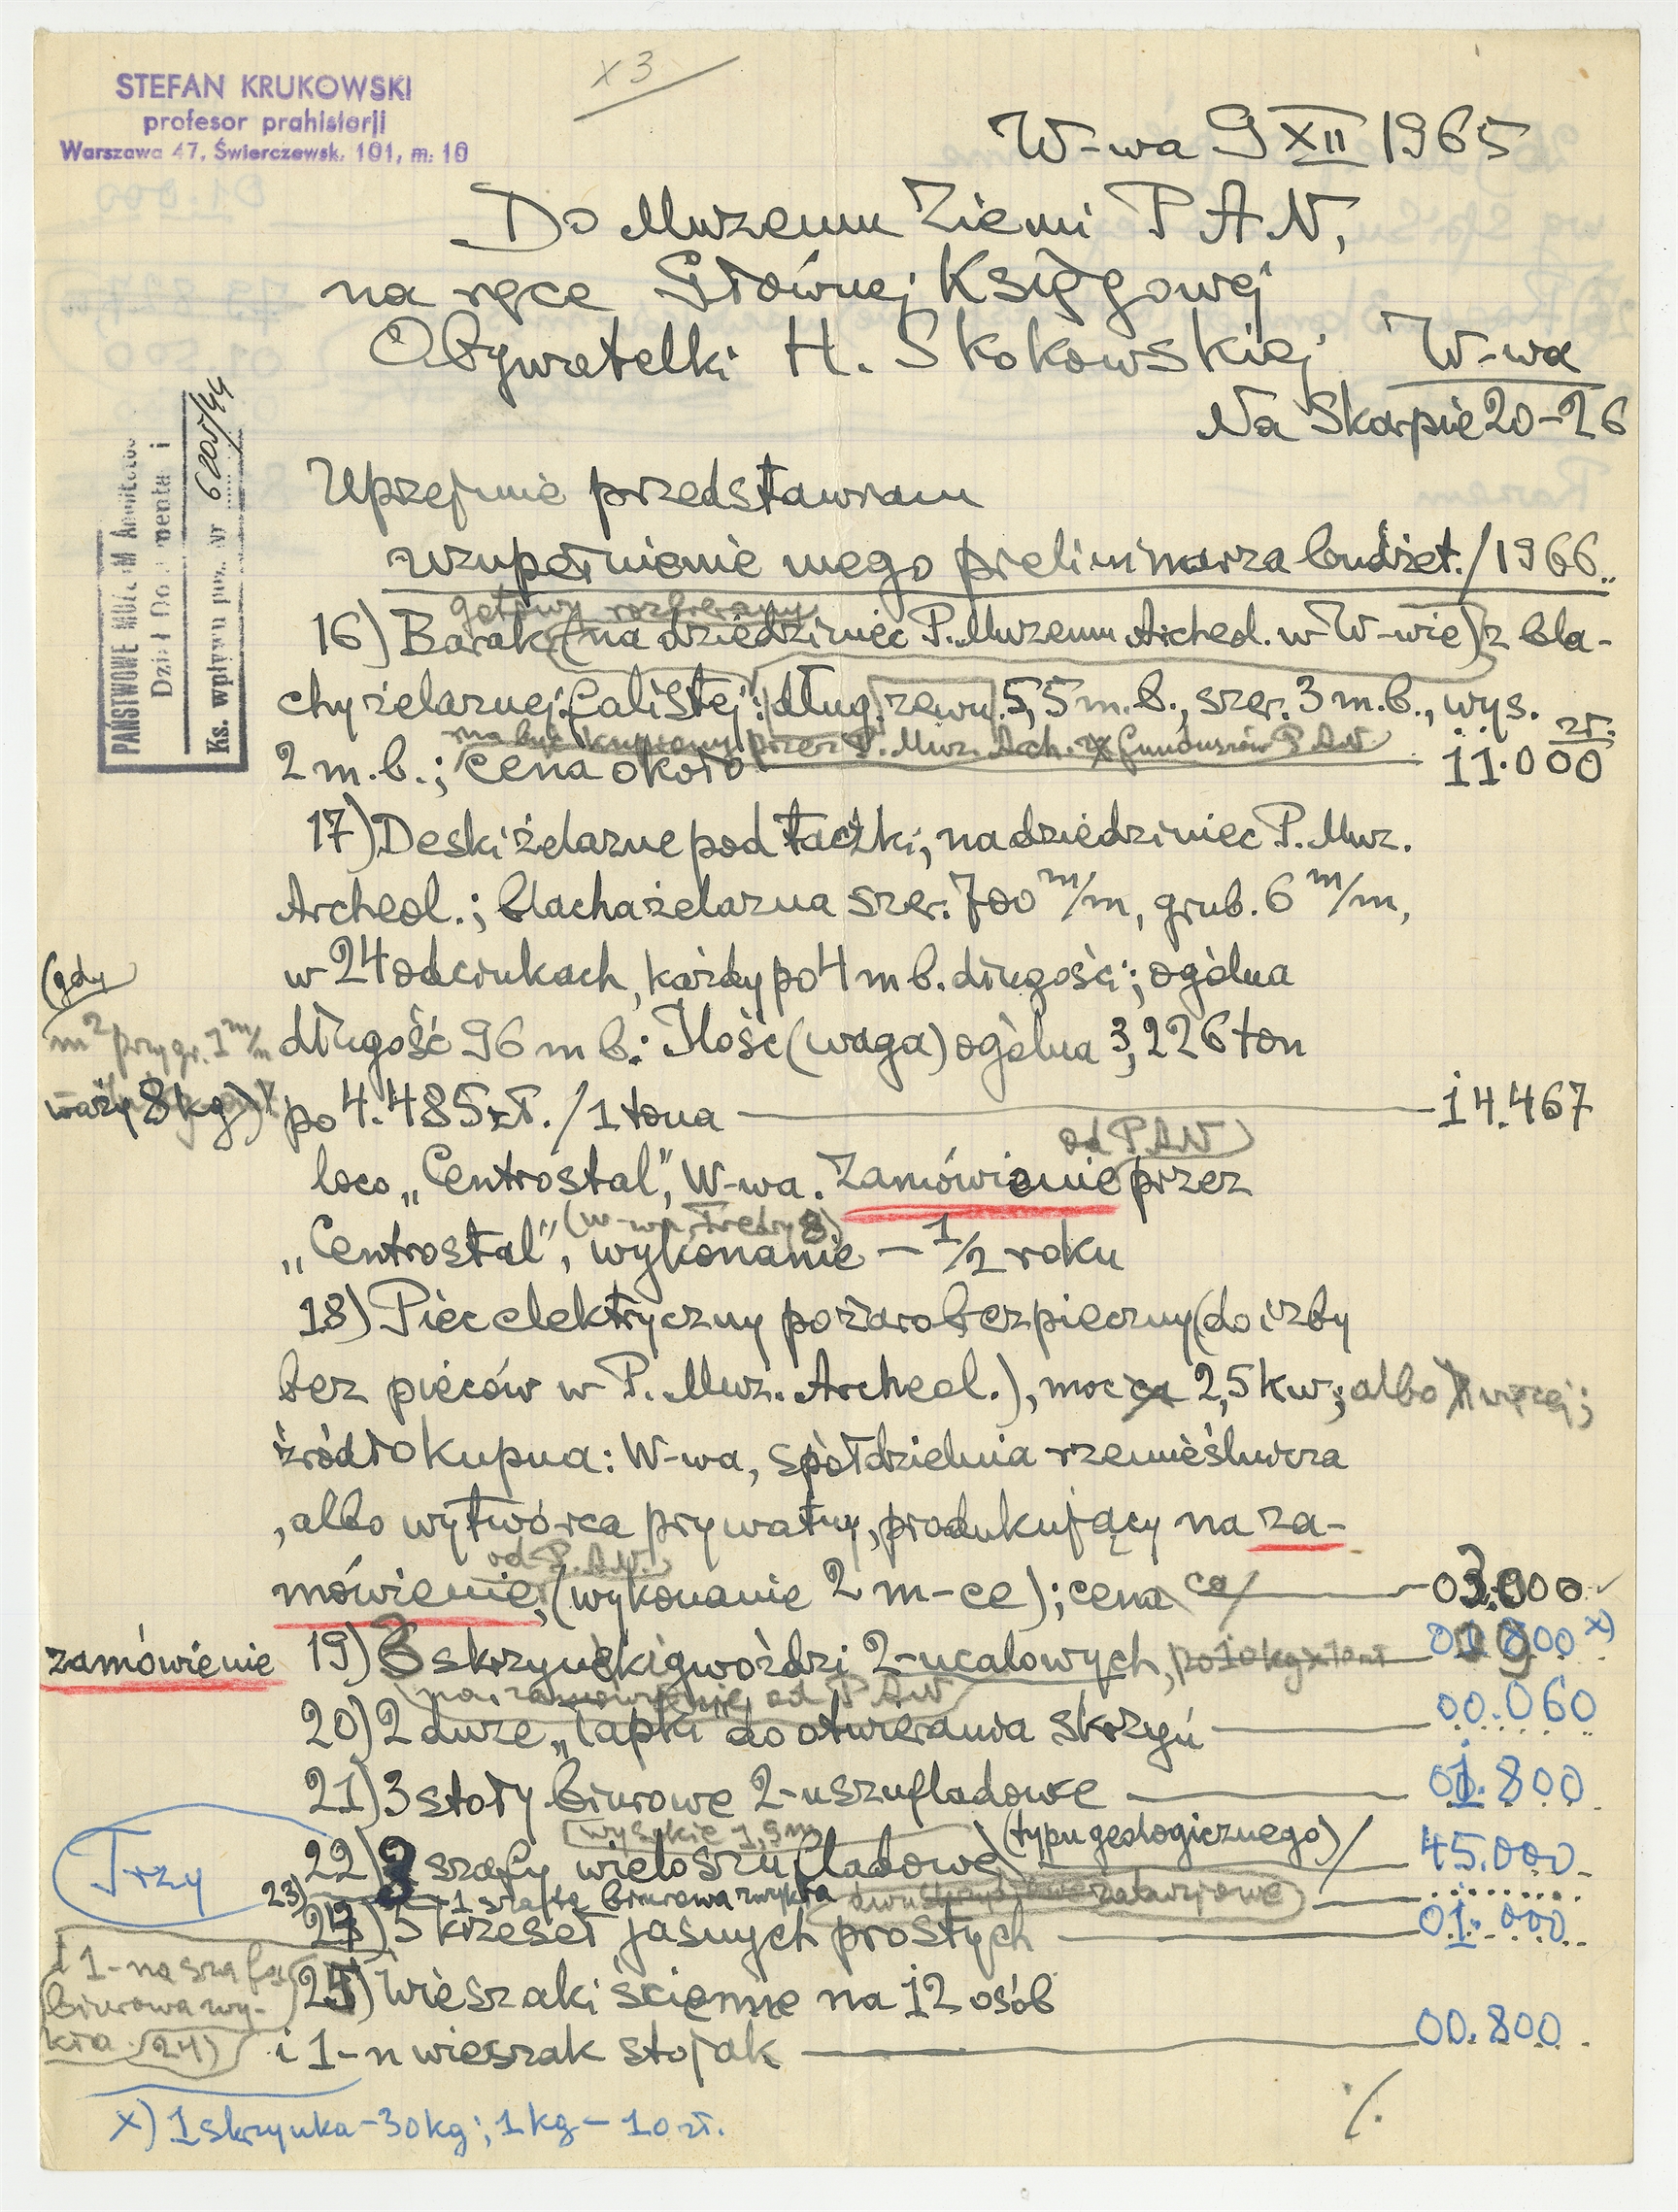 x 3
STEFAN KRUKOWSKI
profesor prahistorji
Warszawa 47, Świerczewsk. 101, m. 10
W-wa 9 XII 1965
Do Muzeum Ziemi P A N,
na ręce Głównej Księgowej
Obywatelki H. Skokowskiej W-wa
Na Skarpie 20-26
PAŃSTWOWE
Ks. wpływu poz. Nr
Uprzejmie przedstawiam
uzupełnienie mego preliminarza budżet./1966.
gotowy rozbierany
16) Barak (na dziedziniec P. Muzeum Archeol. w W-wie) z bla-
chy żelaznej falistej: dług. zewn. 5,5 m.b., szer. 3 m.b., wys.
ma być kupiony przez P. Muz. Arch. z funduszów PAN
zł.
2 m.b.; cena około 11.000
17) Deski żelazne pod taczki, na dziedziniec P. Muz.
Archeol.; blacha żelazna szer. 700 m/m, grub. 6 m/m,
w 24 odcinkach, każdy po 4 m b. długości; ogólna
(gdy
długość 96 m b.: Ilość (waga) ogólna 3,226 ton
m² przy gr. 1 m/m
waży 8 kg)
po 4.485 zł. / 1 tona 14.467
od PAN
loco „Centrostal”, W-wa. Zamówienie przez
(W-wa, Fredry 8)
„Centrostal”, wykonanie – 1/2 roku
18) Piec elektryczny pożarobezpieczny (do izby
bez pieców w P. Muz. Archeol.), moc 2,5 kw; albo więcej;
źródło kupna: W-wa, spółdzielnia rzemieślnicza
, albo wytwórca prywatny, produkujący na za-
od P.A.N.
mówienie, (wykonanie 2 m-ce); cena ca/ 03.000
zamówienie 19) 3 skrzynki gwoździ 2-ucalowych, po 10 kg 00900 x)
na zamówienie od PAN
20) 2 duże „łapki” do otwierania skrzyń 00.060
21) 3 stoły biurowe 2-uszufladowe 01.800
wysokie 1,9 m
Trzy
22) 3 szafy wieloszufladowe (typu geologicznego)/ 45.000
23) 1 szafa biurowa zwykła
24) 5 krzeseł jasnych prostych 01.000
1-na szafa
biurowa zwy-
kła (24)
25) Wieszaki ścienne na 12 osób
i 1-n wieszak stojak 00.800
x) 1 skrzynka – 30 kg; 1 kg – 10 zł.
./.